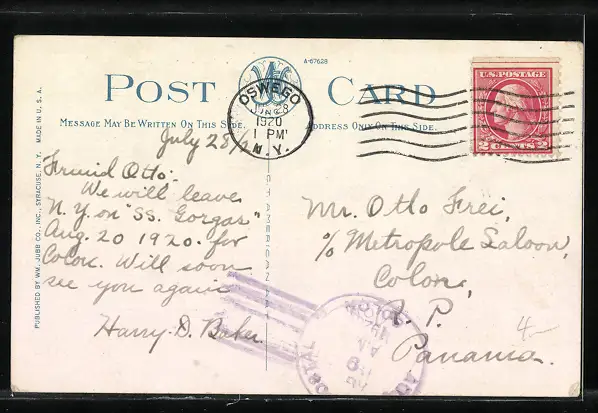 A-67628
POST CARD
MESSAGE MAY BE WRITTEN ON THIS SIDE.
ADDRESS ONLY ON THIS SIDE.
OSWEGO
28
1920
1 PM
N.Y.
U.S. POSTAGE
2 CENTS 2
July 28/20
Freund Otto:-
We will leave
N.Y on "SS. Gorgas"
Aug. 20 1920. for
Colon. Will soon
see you again
Harry. D. Baker.
Mr. Otto Frei,
% Metropole Saloon,
Colon,
R. P.
Panama.
4-
PUBLISHED BY WM. JUBB CO., INC., SYRACUSE, N. Y.  MADE IN U. S. A.